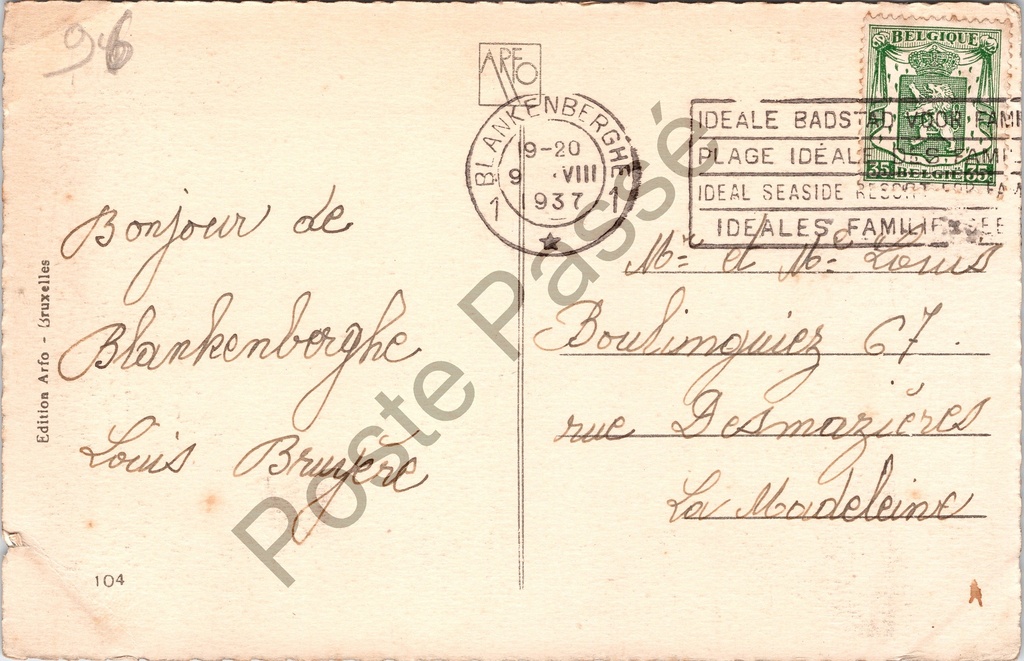 96
ARFO
BLANKENBERGHE
19-20
9 VIII
1937
1 1
IDEALE BADSTAD VOOR FAMI
PLAGE IDÉALE DES FAMIL
IDEAL SEASIDE RESORT FOR FAM
IDEALES FAMILIE SEE
BELGIQUE
35 BELGIE 35
Bonjour de
Blankenberghe
Louis Bruyère
Mr et Me Louis
Boulinguiez 67
rue Desmazières
La Madeleine
Edition Arfo - Bruxelles
104
Poste Passé